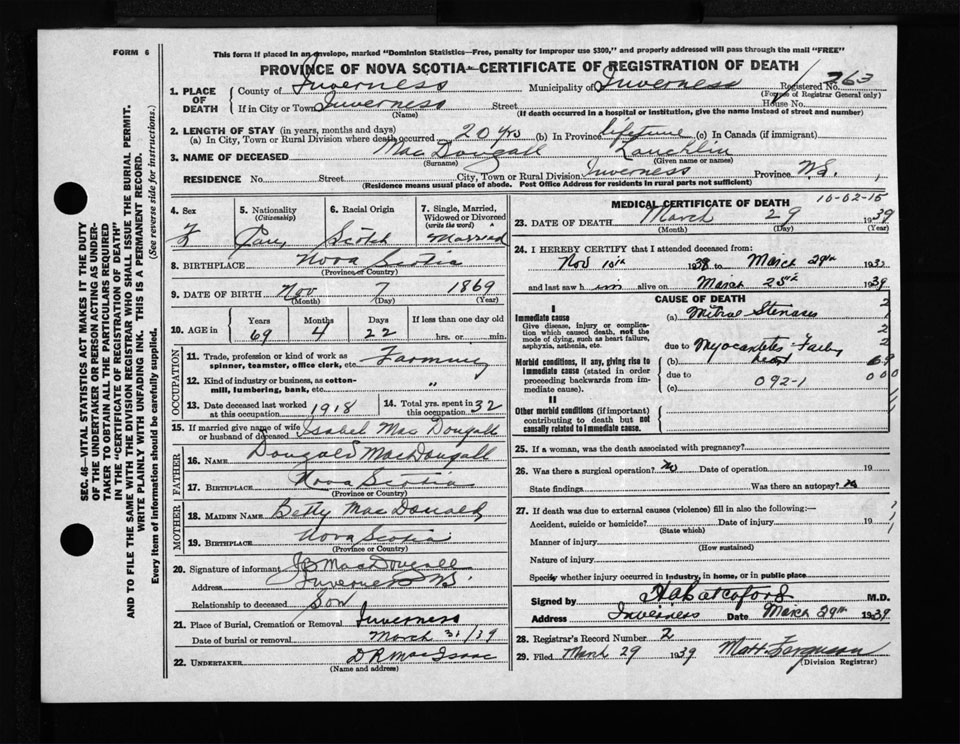 FORM 6
This form if placed in an envelope, marked "Dominion Statistics—Free, penalty for improper use $300," and properly addressed will pass through the mail "FREE"
PROVINCE OF NOVA SCOTIA—CERTIFICATE OF REGISTRATION OF DEATH
1. PLACE OF DEATH
County of Inverness Municipality of Inverness Registered No. 263
(For use of Registrar General only)
If in City or Town Inverness Street House No.
(Name) (If death occurred in a hospital or institution, give the name instead of street and number)
2. LENGTH OF STAY (in years, months and days)
(a) In City, Town or Rural Division where death occurred 20 yrs (b) In Province lifetime (c) In Canada (if immigrant)
3. NAME OF DECEASED MacDougall Lauchlin
(Surname) (Given name or names)
RESIDENCE No. Street City, Town or Rural Division Inverness Province N.S.
(Residence means usual place of abode. Post Office Address for residents in rural parts not sufficient)
4. Sex
5. Nationality (Citizenship) Can
6. Racial Origin Scotch
7. Single, Married, Widowed or Divorced (write the word) Married
8. BIRTHPLACE Nova Scotia
(Province or Country)
9. DATE OF BIRTH Nov 7 1869
(Month) (Day) (Year)
10. AGE in Years Months Days If less than one day old
69 4 22 hrs. or min.
OCCUPATION
11. Trade, profession or kind of work as spinner, teamster, office clerk, etc. Farming
12. Kind of industry or business, as cotton-mill, lumbering, bank, etc. "
13. Date deceased last worked at this occupation 1918
14. Total yrs. spent in this occupation 32
15. If married give name of wife or husband of deceased Isabel MacDougall
FATHER
16. NAME Dougald MacDougall
17. BIRTHPLACE Nova Scotia
(Province or Country)
MOTHER
18. MAIDEN NAME Betty MacDonald
19. BIRTHPLACE Nova Scotia
(Province or Country)
20. Signature of informant MacDougall
Address Inverness N.S.
Relationship to deceased Son
21. Place of Burial, Cremation or Removal Inverness
Date of burial or removal March 31/39
22. UNDERTAKER D R MacIsaac
(Name and address)
MEDICAL CERTIFICATE OF DEATH 10-02-15
23. DATE OF DEATH March 29 1939
(Month) (Day) (Year)
24. I HEREBY CERTIFY that I attended deceased from:
Nov 1938 to March 29th 193
and last saw h im alive on March 25th 1939
CAUSE OF DEATH
I
Immediate cause (a) Mitral Stenosis
Give disease, injury or complication which caused death, not the mode of dying, such as heart failure, asphyxia, asthenia, etc.
due to
Morbid conditions, if any, giving rise to immediate cause (stated in order proceeding backwards from immediate cause).
(b)
due to
(c) 092-1
II
Other morbid conditions (if important) contributing to death but not causally related to immediate cause.
25. If a woman, was the death associated with pregnancy?
26. Was there a surgical operation? No Date of operation 19
State findings Was there an autopsy?
27. If death was due to external causes (violence) fill in also the following:—
Accident, suicide or homicide? Date of injury 19
(State which)
Manner of injury
(How sustained)
Nature of injury
Specify whether injury occurred in industry, in home, or in public place
Signed by M.D.
Address Inverness Date March 29th 1939
28. Registrar's Record Number 2
29. Filed March 29 1939 Matt Ferguson
(Division Registrar)
SEC. 46—VITAL STATISTICS ACT MAKES IT THE DUTY
OF THE UNDERTAKER OR PERSON ACTING AS UNDER-
TAKER TO OBTAIN ALL THE PARTICULARS REQUIRED
IN THE "CERTIFICATE OF REGISTRATION OF DEATH"
AND TO FILE THE SAME WITH THE DIVISION REGISTRAR WHO SHALL ISSUE THE BURIAL PERMIT.
WRITE PLAINLY WITH UNFADING INK. THIS IS A PERMANENT RECORD.
Every item of information should be carefully supplied. (See reverse side for instructions).